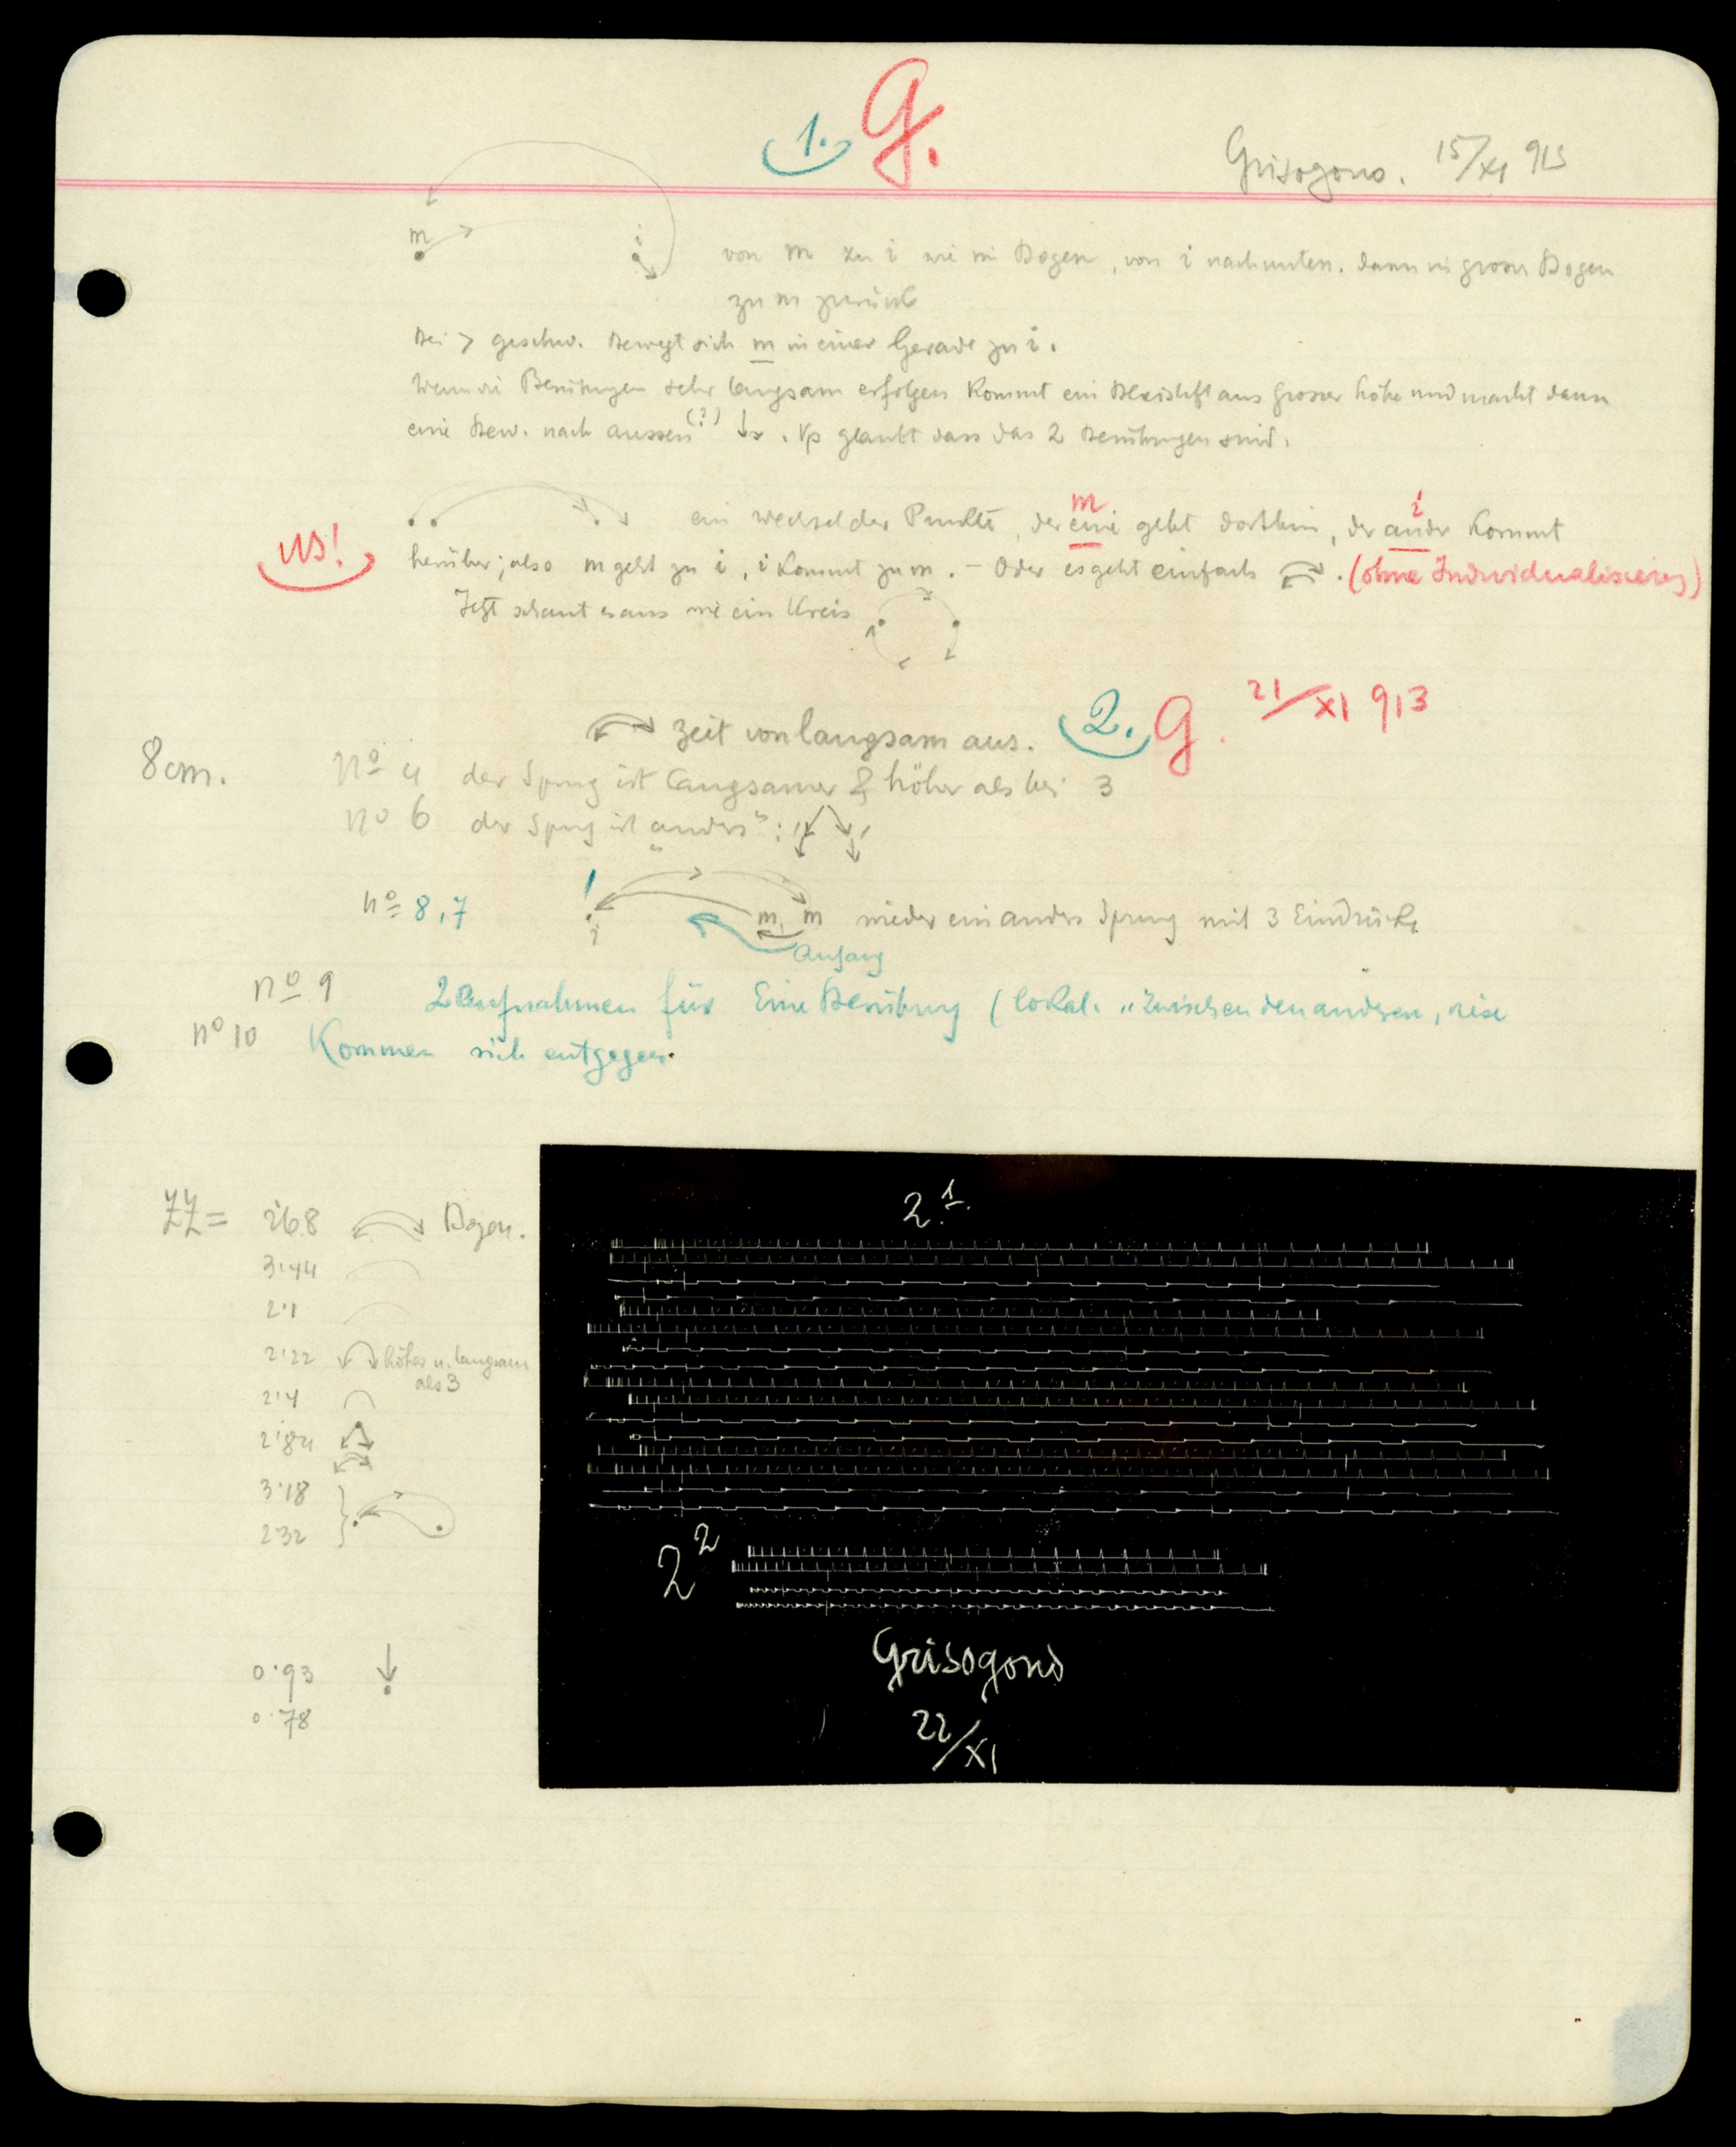 1. G.
Grisogono. 15/XI 913
m i
von m zu i wie ein Bogen, von i nach unten. Dann in grosser Bogen
zu m zurück
Bei > geschw. Bewegt sich m in einer Gerade zu i.
Wenn die Berührungen sehr langsam erfolgen kommt ein Bleistift aus grosser höhe und macht dann
eine Bew. nach aussen (?) . Vp glaubt dass das 2 Berührungen sind.
m i
ein Wechsel der Punkte, der eine geht dorthin, der andr kommt
NB!
herüber; also m geht zu i, i kommt zu m. – Oder es geht einfach . (ohne Individualisierung)
Jetzt schaut es aus wie ein Kreis
2. G. 21/XI 913
Zeit von langsam aus.
8cm. no 4 der Sprung ist langsamer & höher als bei 3
no 6 der Sprung ist „anders":
no 8,7 i m m wieder ein andrs Sprung mit 3 Eindrücke
Anfang
no 9 2 Aufnahmen für Eine Berührung (lokal. „zwischen den anderen,
no 10 Kommen sich entgegen.
ZZ = 2·68 Bogen.
3·44
2·1
2·22 höher u. langsam
als 3
2·4
2·84
3·18
2·32
0·93
0·78
2.1.
2 2
Grisogono
22/XI